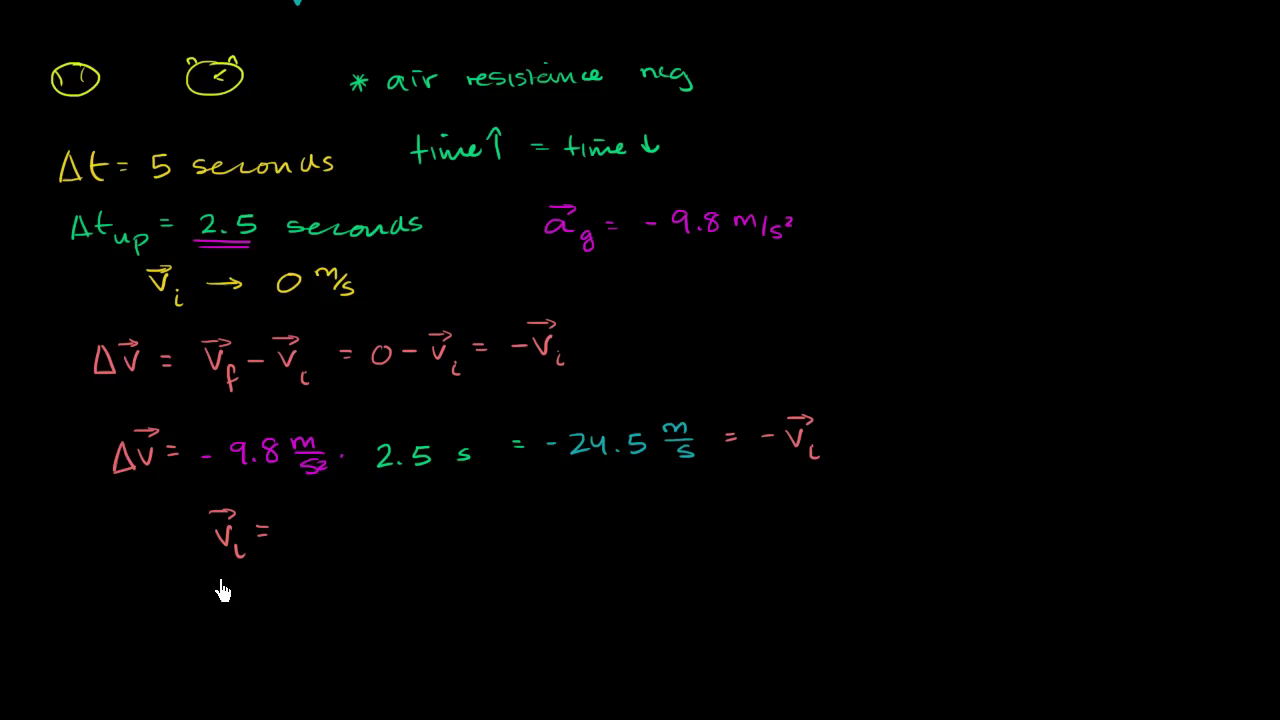 * air resistance neg
time↑ = time↓
Δt = 5 seconds
Δt_up = 2.5 seconds
a⃗_g = - 9.8 m/s²
v⃗_i → 0 m/s
Δv⃗ = v⃗_f - v⃗_i = 0 - v⃗_i = -v⃗_i
Δv⃗ = - 9.8 m/s² · 2.5 s = - 24.5 m/s = - v⃗_i
v⃗_i =